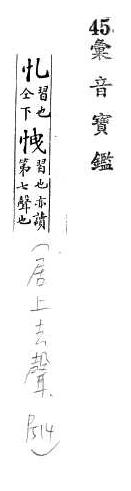 45.彙音寶鑑
忕習也仝下 怈習也亦讀第七聲也
(居上去聲, P514)